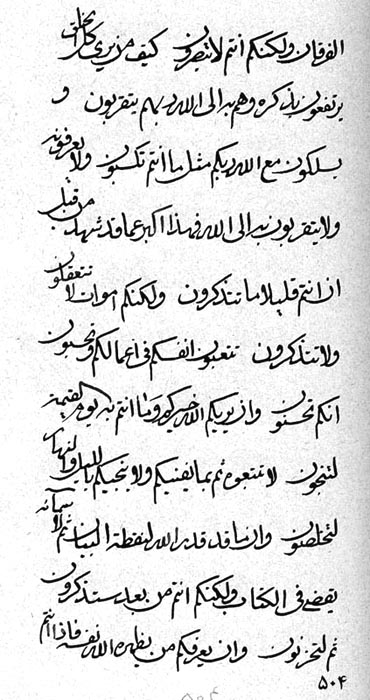 الفرقان ولكنكم انتم لاتبصرون كيف من يرى كل الخلق
يرتفعون بذكره وهم به الى الله ربهم يتقربون و
يسلكون مع الله ربكم مثل ما انتم تكسبون ولا يعرفونه
ولا يتقربون به الى الله فهذا اكبر عما قد شهد من قبل
ان انتم قليلا ما تتذكرون ولكنكم اموات لا تتعقلون
ولا تتذكرون تتعبون انفسكم فى اعمالكم وتحسبون
انكم تحسنون وان يريكم الله خيركم وما انتم به يوم القيمة
لتنجون لا تتبعوه ثم بما يفنيكم ولا ينجيكم بالليل والنهار
لتخلصون وان ما قد قدر الله لنقطة البيان ثم لاسمائه
يقضى فى الكتاب ولكنكم انتم من بعد ستذكرون
ثم لتحزنون وان يعرفكم من يظهره الله نفسه فاذا انتم
۵۰۴